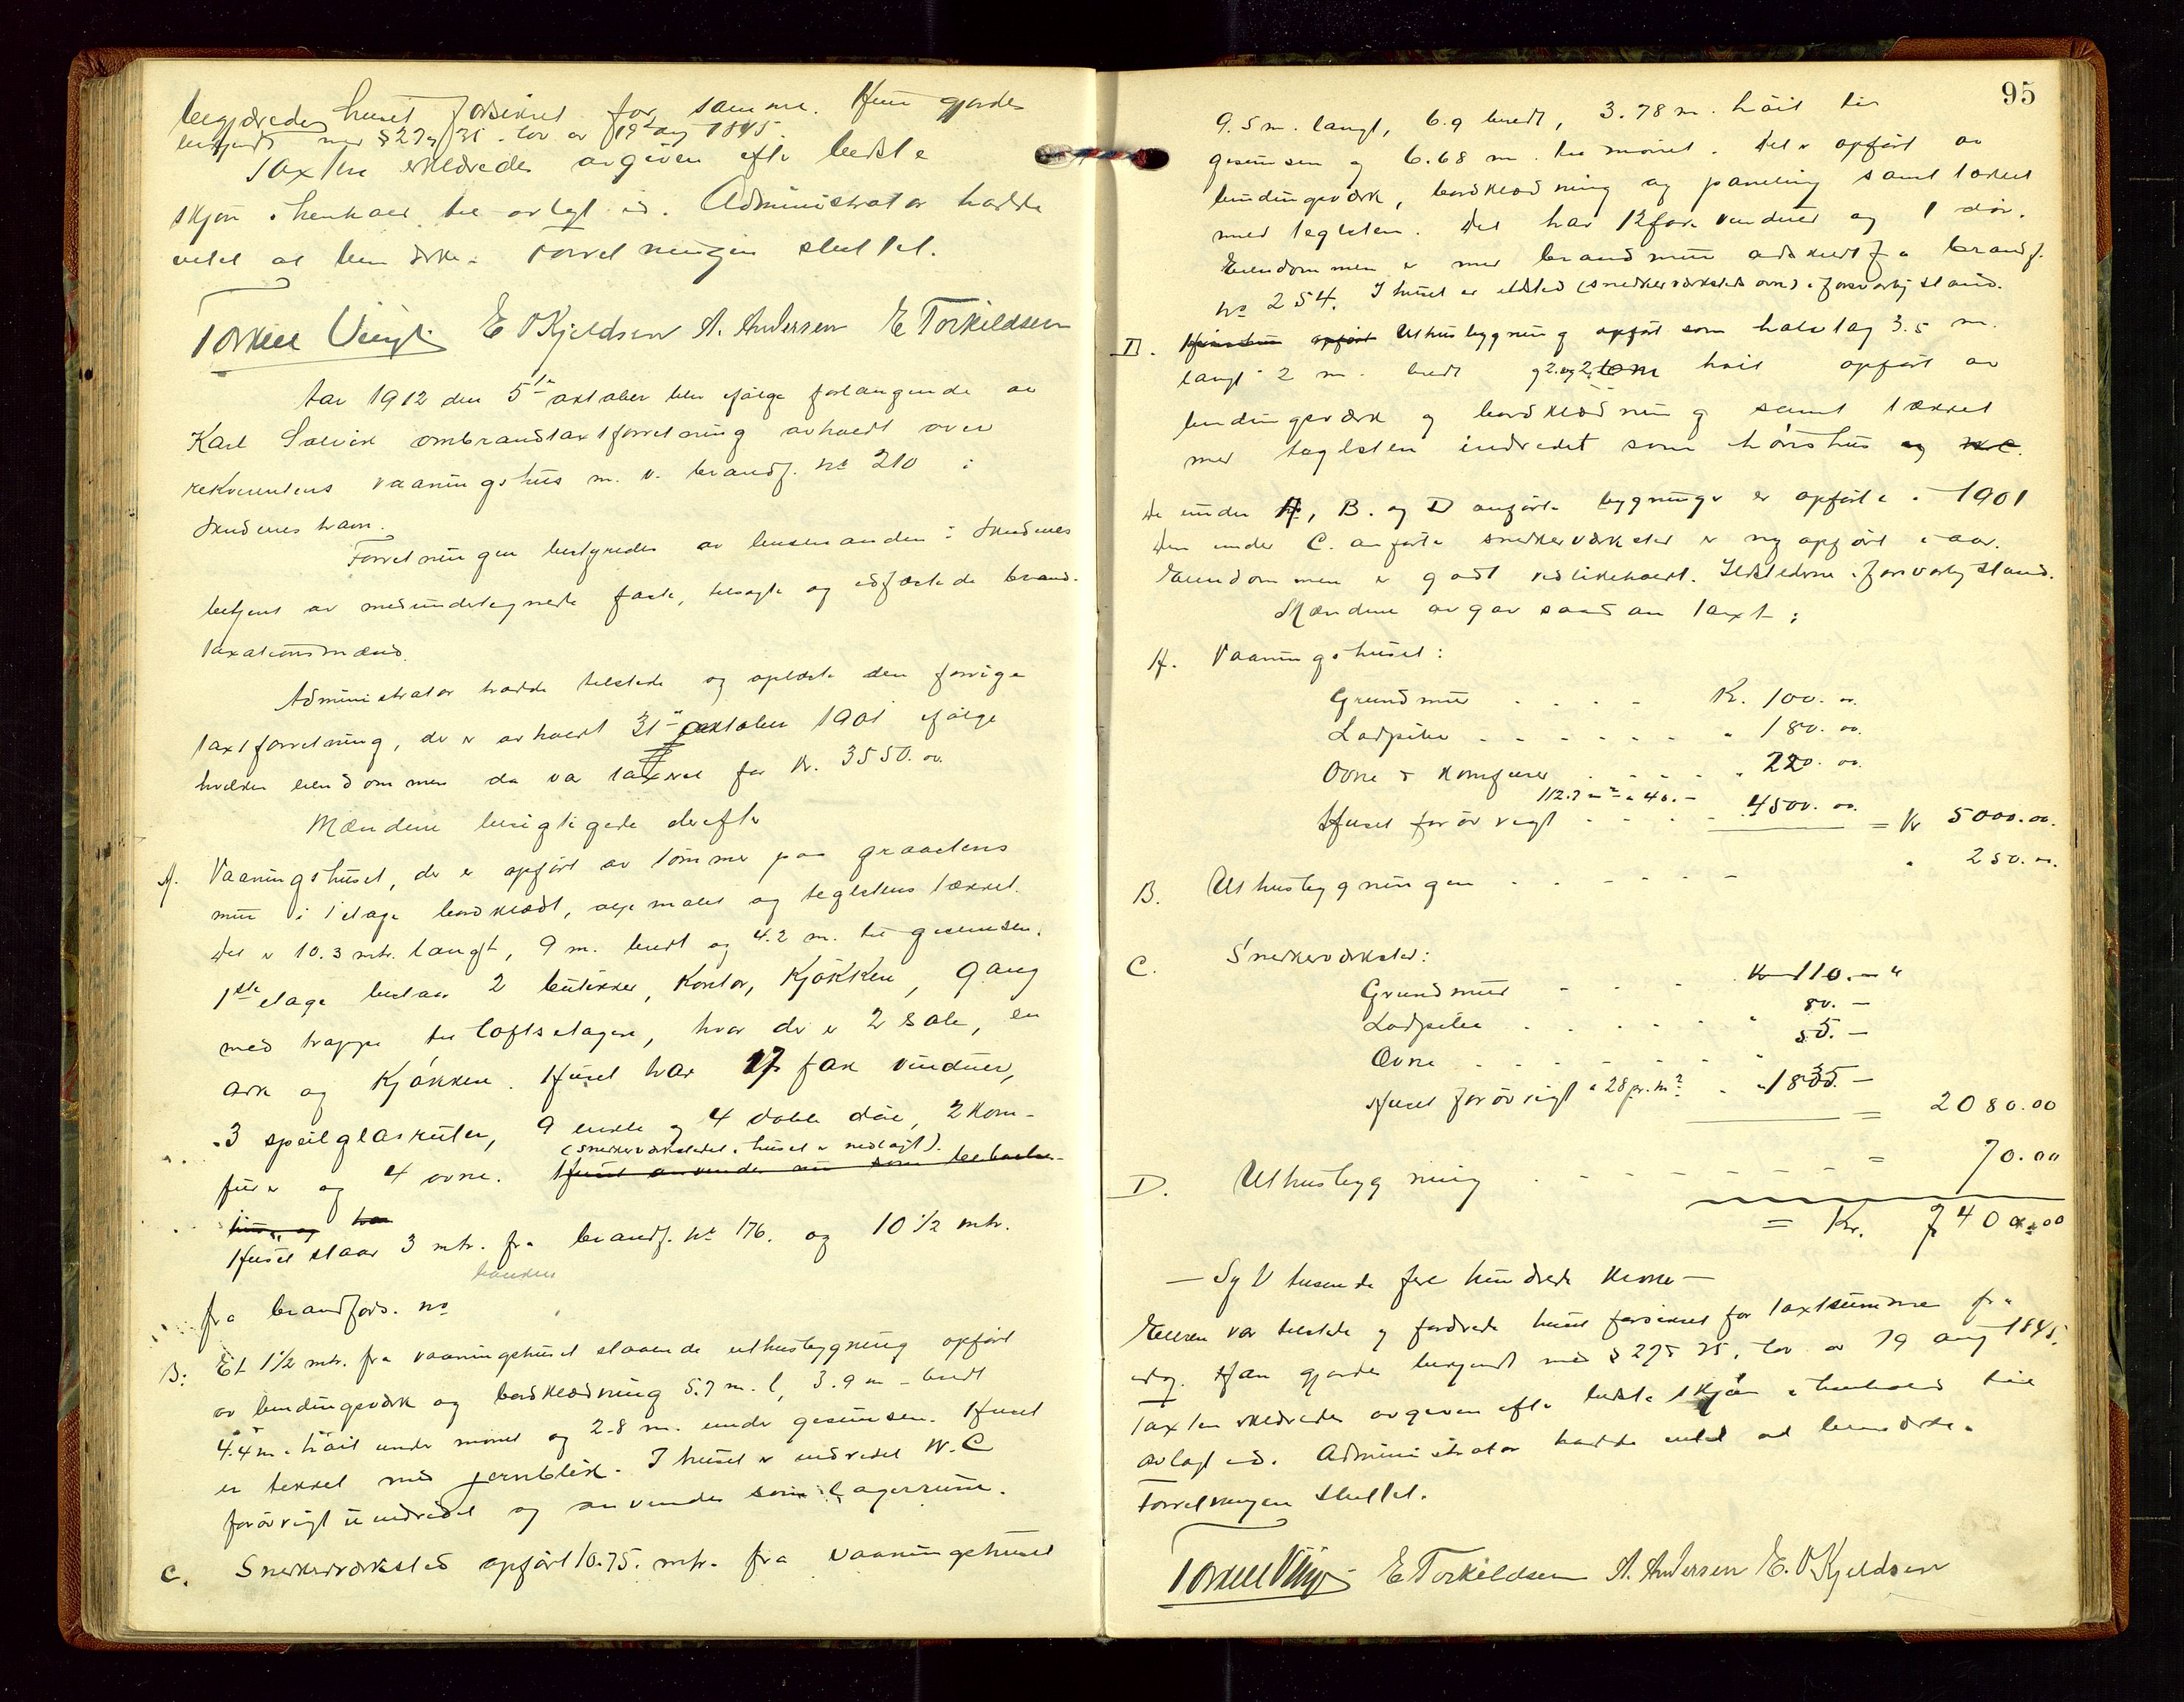 begjæredes huset forsikret for samme. Hun gjordes
bekjendt med § 27 og 35 i lov av 19de aug 1845.
Taxten erklæredes avgiven efter bedste
skjøn i henhold til avlagt ed. Administrator hadde
intet at bemærke. Forretningen sluttet.
Torkell Vinje E O Kjeldsen A. Andersen E Torkildsen
Aar 1912 den 5te oktober blev ifølge forlangende av
Karl Solvik ombrandtaxtforretning avholdt over
rekvirentens vaaningshus m. v. brandf. No 210 i
Skudeneshavn.
Forretningen bestyredes av lensmanden i Skudenes
betjent av medundertegnede faste, tilsagte og edfæstede brand-
taxationsmænd.
Administrator hadde tilstede og oplæste den forrige
taxtforretning, der er avholdt 31te oktober 1901 ifølge
hvilken eiendommen da var taxeret for Kr. 3550.00
Mændene besigtigede derefter
A. Vaaningshuset, der er opført av tømmer paa graastens
mur i 1 etage bordklædt, oljemalet og teglstens tækket.
Det er 10.3 mtr. langt, 9 m. bredt og 4.2 m. til gesimsen.
1ste etage bestaar 2 butikker, Kontor, Kjøkken, gang
med trappe til loftsetagen, hvor der er 2 sale, en
ark og Kjøkken. Huset har 17 fag vinduer,
3 speilglasruter, 9 enkle og 4 doble døre, 2 Kom-
(snekkerværkstedet i huset er nedlagt).
fure og 4 ovne. Huset anvendes nu som beboelses-
hus, og har
Huset staar 3 mtr. fra brandf. No 176. og 10 1/2 mtr.
fra brandfors. no
B: Et 1 1/2 mtr. fra vaaningshuset staaende uthusbygning opført
av bindingsværk og bordklædning 5.7 m. l, 3.9 m - bredt
4.4 m. høit under mønet og 2.8 m. under gesimsen. Huset
er tekket med jernblik. I huset er indredet W.C
forøvrigt uindredet og anvendes som lagerrum.
C. Snekkerværksted opført 10.75. mtr. fra vaaningshuset
95
9.5 m. langt, 6.9 bredt, 3.78 m. høit til
gesimsen og 6.68 m. til mønet. Det er opført av
bindingsværk, bordklædning og paneling samt tækket
med teglsten. Det har 12 fag vinduer og 1 dør.
Eiendommen er med brandmur adskilt fra brandf.
No 254. I huset er ildsted (snekkerværksteds ovn) i forsvarlig stand.
D. opført Uthusbygning opført som halvtag 3.5 m.
langt 2 m. bredt høit opført av
bindingsværk og bordklædning samt tækket
med teglsten indredet som hønshus og W.C.
De under A, B. og D anførte bygninger er opførte i 1901
Den under C. anførte snekkerværksted er ny opført i aar.
Eiendommen er godt vedlikeholdt. Ildstederne i forsvarlig stand.
Mændene avgav saadan taxt:
A. Vaaningshuset:
Grundmur . . . . Kr. 100.00
Ladpiber . . . . . . " 180.00
Ovne & Komfurer . . . . " 220.00
112.7 m2 a 40.-
Huset forøvrigt . . . . 4500.00 = Kr 5000.00.
B. Uthusbygningen . . . . . . " 250.00.
C. Snekkerværksted:
Grundmur . . . Kr 110. - "
Ladpibe . . . . . " 80. -
Ovne . . . . . . " 55. -
Huset forøvrigt a 28 pr. m2 . . " 1835. - = 2080.00
D. Uthusbygning . . . . . . . = 70.00
= Kr. 7400.00
- Syv tusende fire hundrede kroner -
Eieren var tilstede og fordrede huset forsikret for taxtsummen fra
idag. Han gjordes bekjendt med § 27 & 35, lov av 19 aug 1845.
Taxten erklæredes avgiven efter bedste skjøn i henhold til
avlagt ed. Administrator hadde intet at bemærke.
Forretningen sluttet.
Torkell Vinje E Torkildsen A. Andersen E. O Kjeldsen